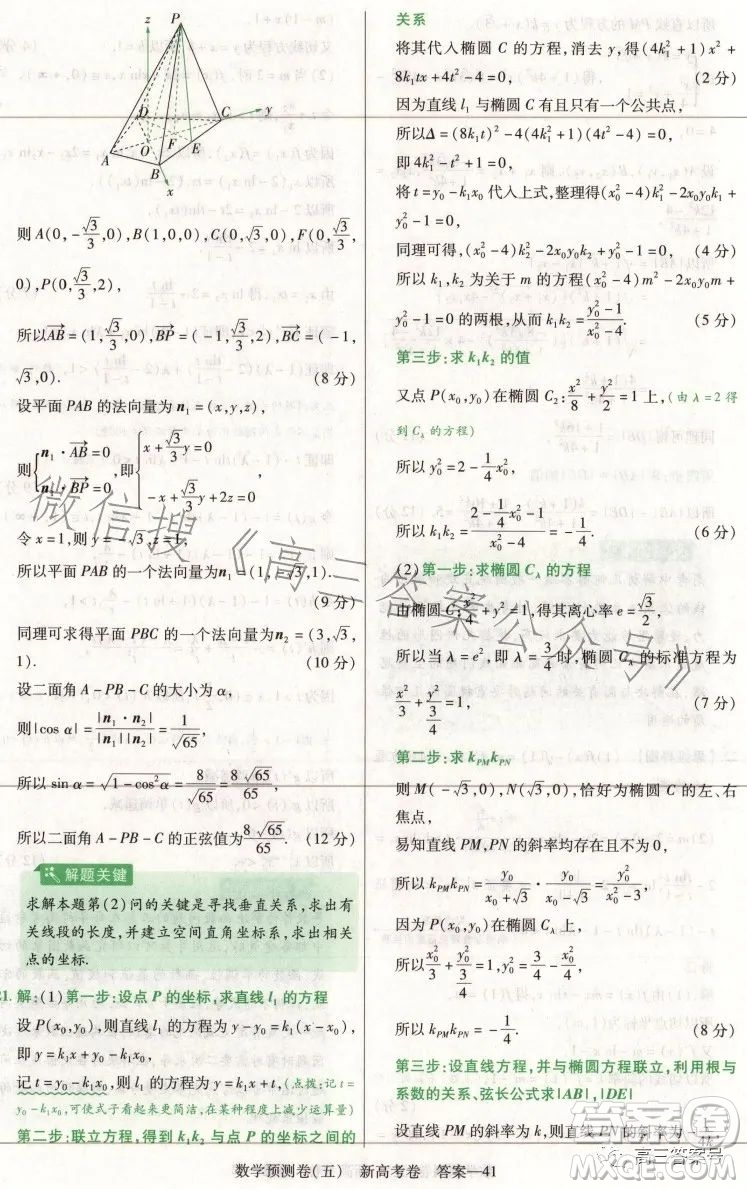 z
P
D
C
y
O
F
E
A
B
x
则 A(0,-√3/3,0),B(1,0,0),C(0,√3,0),F(0,√3/3,
0),P(0,√3/3,2),
所以AB→=(1,√3/3,0),BP→=(-1,√3/3,2),BC→=(-1,
√3,0). (8 分)
设平面 PAB 的法向量为 n₁=(x,y,z),
则{n₁·AB→=0 n₁·BP→=0,即{x+√3/3y=0 -x+√3/3y+2z=0
令 x=1,则 y=-√3,z=1,
所以平面 PAB 的一个法向量为 n₁=(1,-√3,1).
(9 分)
同理可求得平面 PBC 的一个法向量为 n₂=(3,√3,
1). (10 分)
设二面角 A-PB-C 的大小为 α,
则|cos α|=|n₁·n₂|/|n₁||n₂|=1/√65,
所以 sin α=√(1-cos²α)=8/√65=8√65/65,
所以二面角 A-PB-C 的正弦值为8√65/65. (12 分)
解题关键
求解本题第(2)问的关键是寻找垂直关系,求出有
关线段的长度,并建立空间直角坐标系,求出相关
点的坐标.
21. 解:(1)第一步:设点 P 的坐标,求直线 l₁ 的方程
设 P(x₀,y₀),则直线 l₁ 的方程为 y-y₀=k₁(x-x₀),
即 y=k₁x+y₀-k₁x₀,
记 t=y₀-k₁x₀,则 l₁ 的方程为 y=k₁x+t,(点拨:记 t=
y₀-k₁x₀,可使式子看起来更简洁,在某种程度上减少运算量)
第二步:联立方程,得到 k₁k₂ 与点 P 的坐标之间的
关系
将其代入椭圆 C 的方程,消去 y,得(4k₁²+1)x²+
8k₁tx+4t²-4=0, (2 分)
因为直线 l₁ 与椭圆 C 有且只有一个公共点,
所以Δ=(8k₁t)²-4(4k₁²+1)(4t²-4)=0,
即 4k₁²-t²+1=0,
将 t=y₀-k₁x₀ 代入上式,整理得(x₀²-4)k₁²-2x₀y₀k₁+
y₀²-1=0,
同理可得,(x₀²-4)k₂²-2x₀y₀k₂+y₀²-1=0, (4 分)
所以 k₁,k₂ 为关于 m 的方程(x₀²-4)m²-2x₀y₀m+
y₀²-1=0 的两根,从而 k₁k₂=(y₀²-1)/(x₀²-4). (5 分)
第三步:求 k₁k₂ 的值
又点 P(x₀,y₀)在椭圆 C₂:x²/8+y²/2=1 上,(由 λ=2 得
到 C_λ 的方程)
所以 y₀²=2-1/4x₀²,
所以 k₁k₂=(2-1/4x₀²-1)/(x₀²-4)=-1/4. (6 分)
(2)第一步:求椭圆 C_λ 的方程
由椭圆 C:x²/4+y²=1,得其离心率 e=√3/2,
所以当 λ=e²,即 λ=3/4时,椭圆 C_λ 的标准方程为
x²/3+y²/(3/4)=1. (7 分)
第二步:求 k_PM k_PN
则 M(-√3,0),N(√3,0),恰好为椭圆 C 的左、右
焦点,
易知直线 PM,PN 的斜率均存在且不为 0,
所以 k_PM k_PN=y₀/(x₀+√3)·y₀/(x₀-√3)=y₀²/(x₀²-3),
因为 P(x₀,y₀)在椭圆 C_λ 上,
所以x₀²/3+y₀²/(3/4)=1,
所以 k_PM k_PN=-1/4. (8 分)
第三步:设直线方程,并与椭圆方程联立,利用根与
系数的关系、弦长公式求|AB|,|DE|
设直线 PM 的斜率为 k,则直线 PN 的斜率为-1/4k
数学预测卷(五) 新高考卷 答案—41
微信搜《高三答案公众号》
高三答案号
答案圈